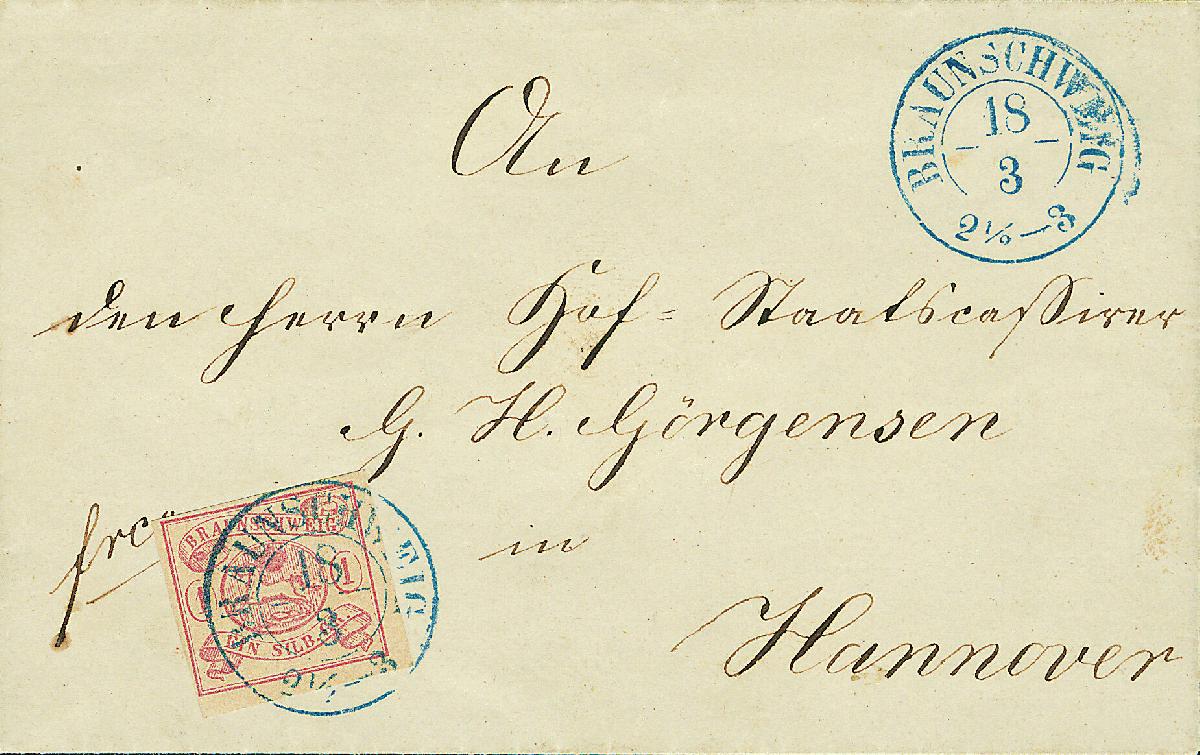 BRAUNSCHWEIG
18
3
2½—3
An
den Herrn Hof-Staatscassirer
G. H. Görgensen
frco
in
Hannover
BRAUNSCHWEIG
1 1
EIN SILB.GR.
BRAUNSCHWEIG
18
3
2½—3